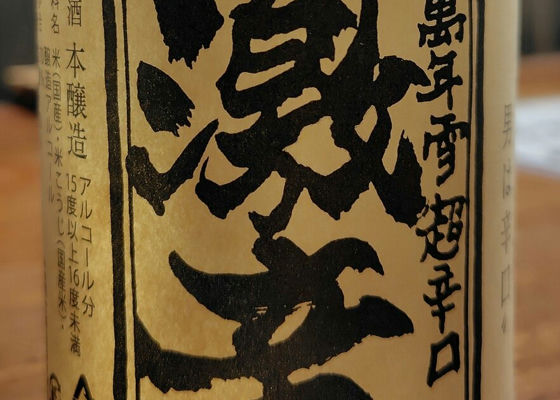 男は辛口
萬年雪超辛口
激辛
アルコール分
15度以上16度未満
酒 本醸造
料名 米(国産)・米こうじ(国産米)・
醸造アルコール